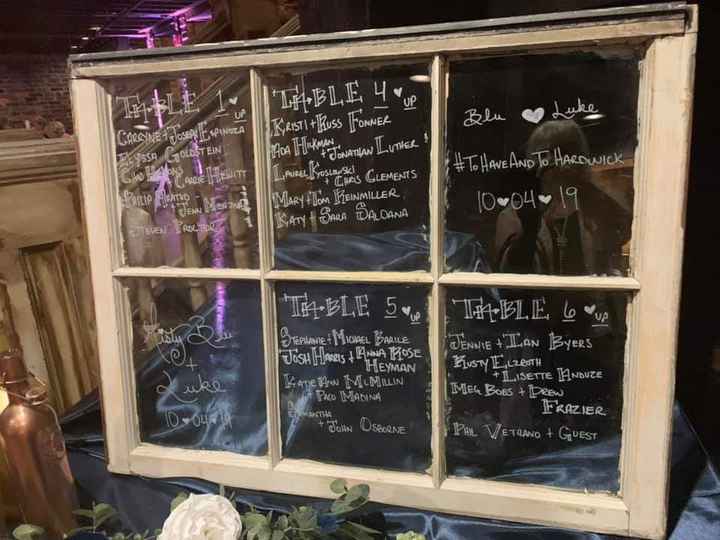 TABLE 1 ♥ UP
GARRYNE + JOSEPH ESPINOZA
ELYSSA GOLDSTEIN
+ CARRIE HEWITT
PHILIP
+ JENN
STEVEN PROCTOR
TABLE 4 ♥ UP
KRISTI + RUSS FONNER
ADA HICKMAN
+ JONATHAN LUTHER
LAUREL KOSLOWSKI
+ CHRIS CLEMENTS
MARY + TOM REINMILLER
KATY + SARA SALDANA
Blu ♥ Luke
#TOHAVEANDTOHARDWICK
10♥04♥19
Misty Blu
+
Luke
10♥04♥19
TABLE 5 ♥ UP
STEPHANIE + MICHAEL BARILE
JOSH HARRIS + ANNA ROSE
HEYMAN
KATIE ANN MCMILLIN
+ PACO MADINA
SAMANTHA
+ JOHN OSBORNE
TABLE 6 ♥ UP
JENNIE + IAN BYERS
RUSTY ELZROTH
+ LISETTE ANDUZE
MEG BOBS + DREW
FRAZIER
PHIL VETRANO + GUEST